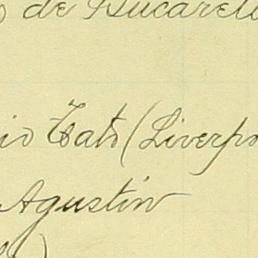 de Bucareli
io Tato (Liverpo
Agustín